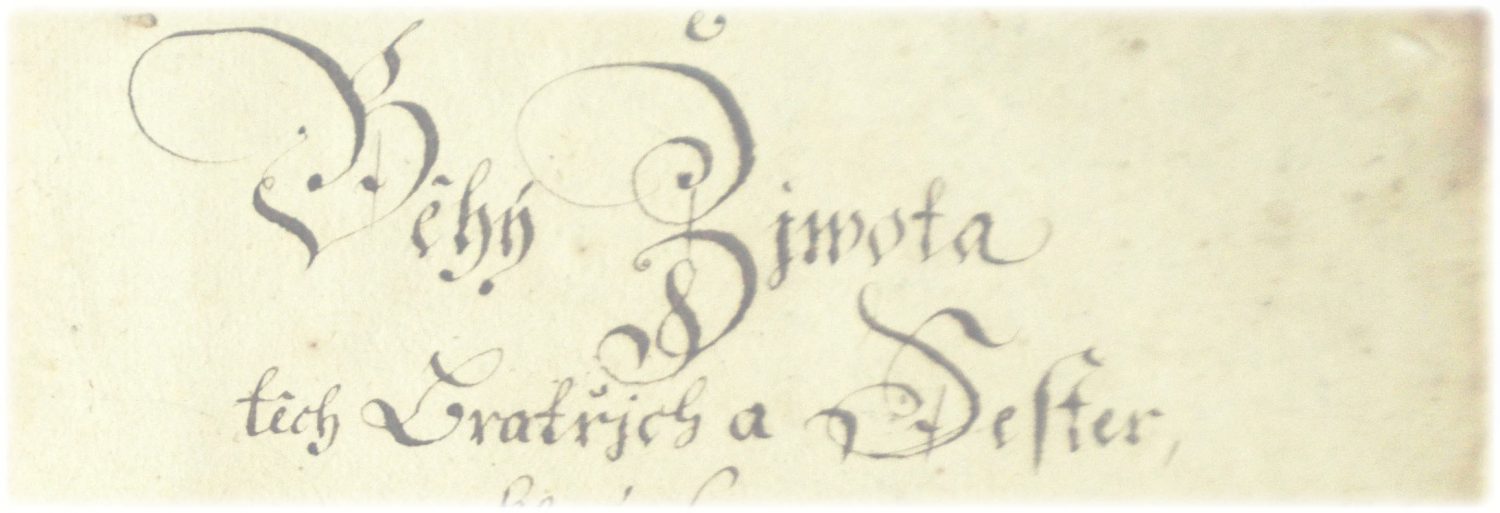 Běhÿ Žiwota
těch Bratřjch a Sester,